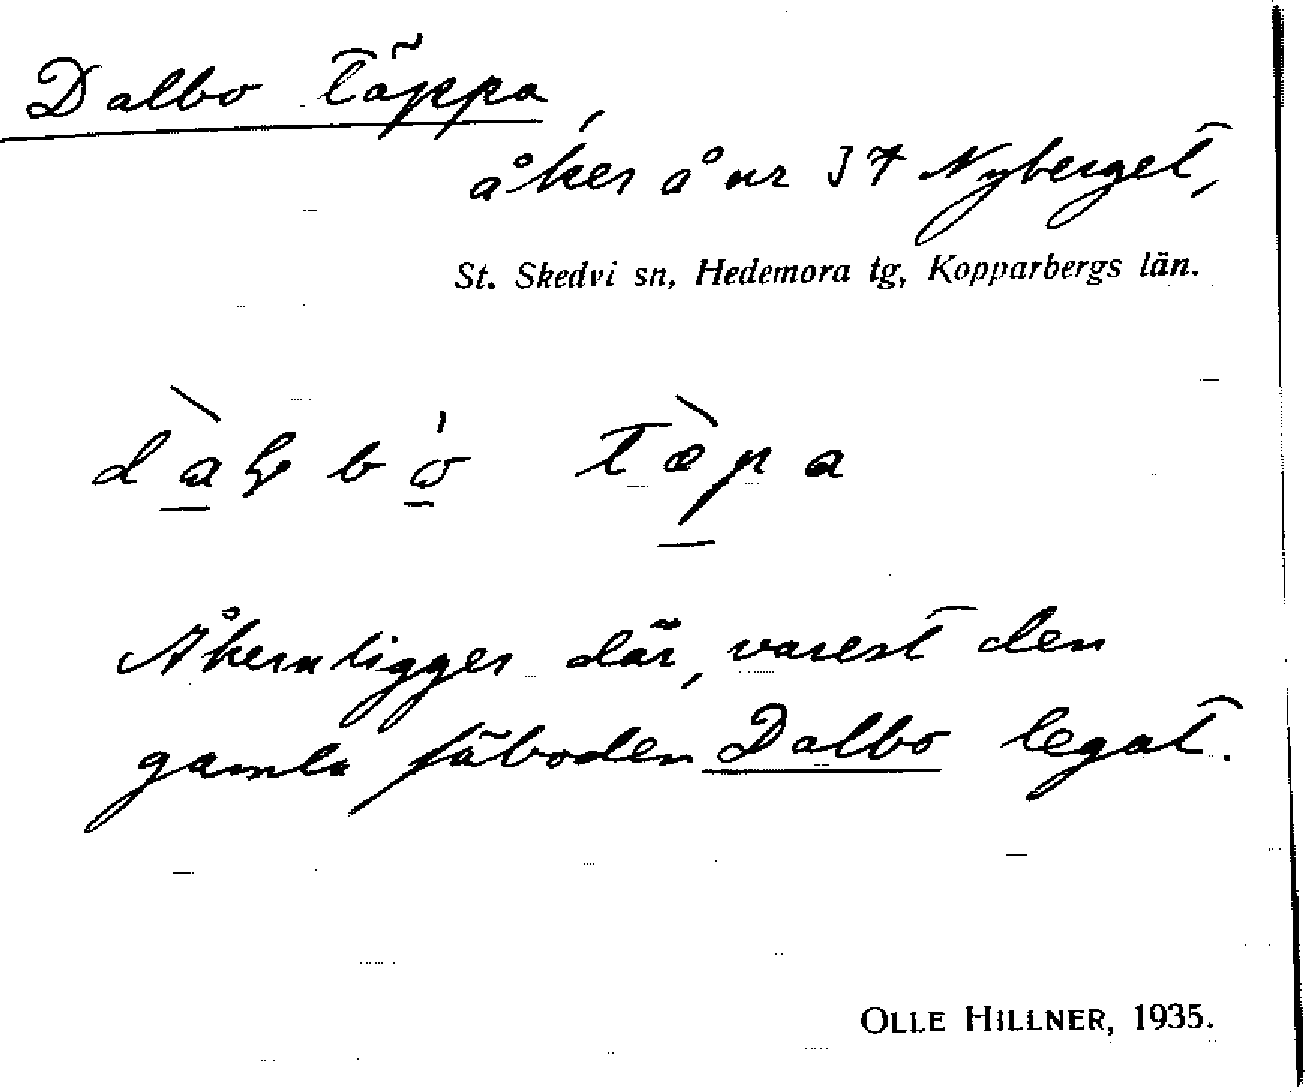 Dalbo Täppa,
åker å nr 37 Nyberget,
St. Skedvi sn, Hedemora tg, Kopparbergs län.
Åkern ligger där, varest den
gamla fäboden Dalbo legat.
OLLE HILLNER, 1935.